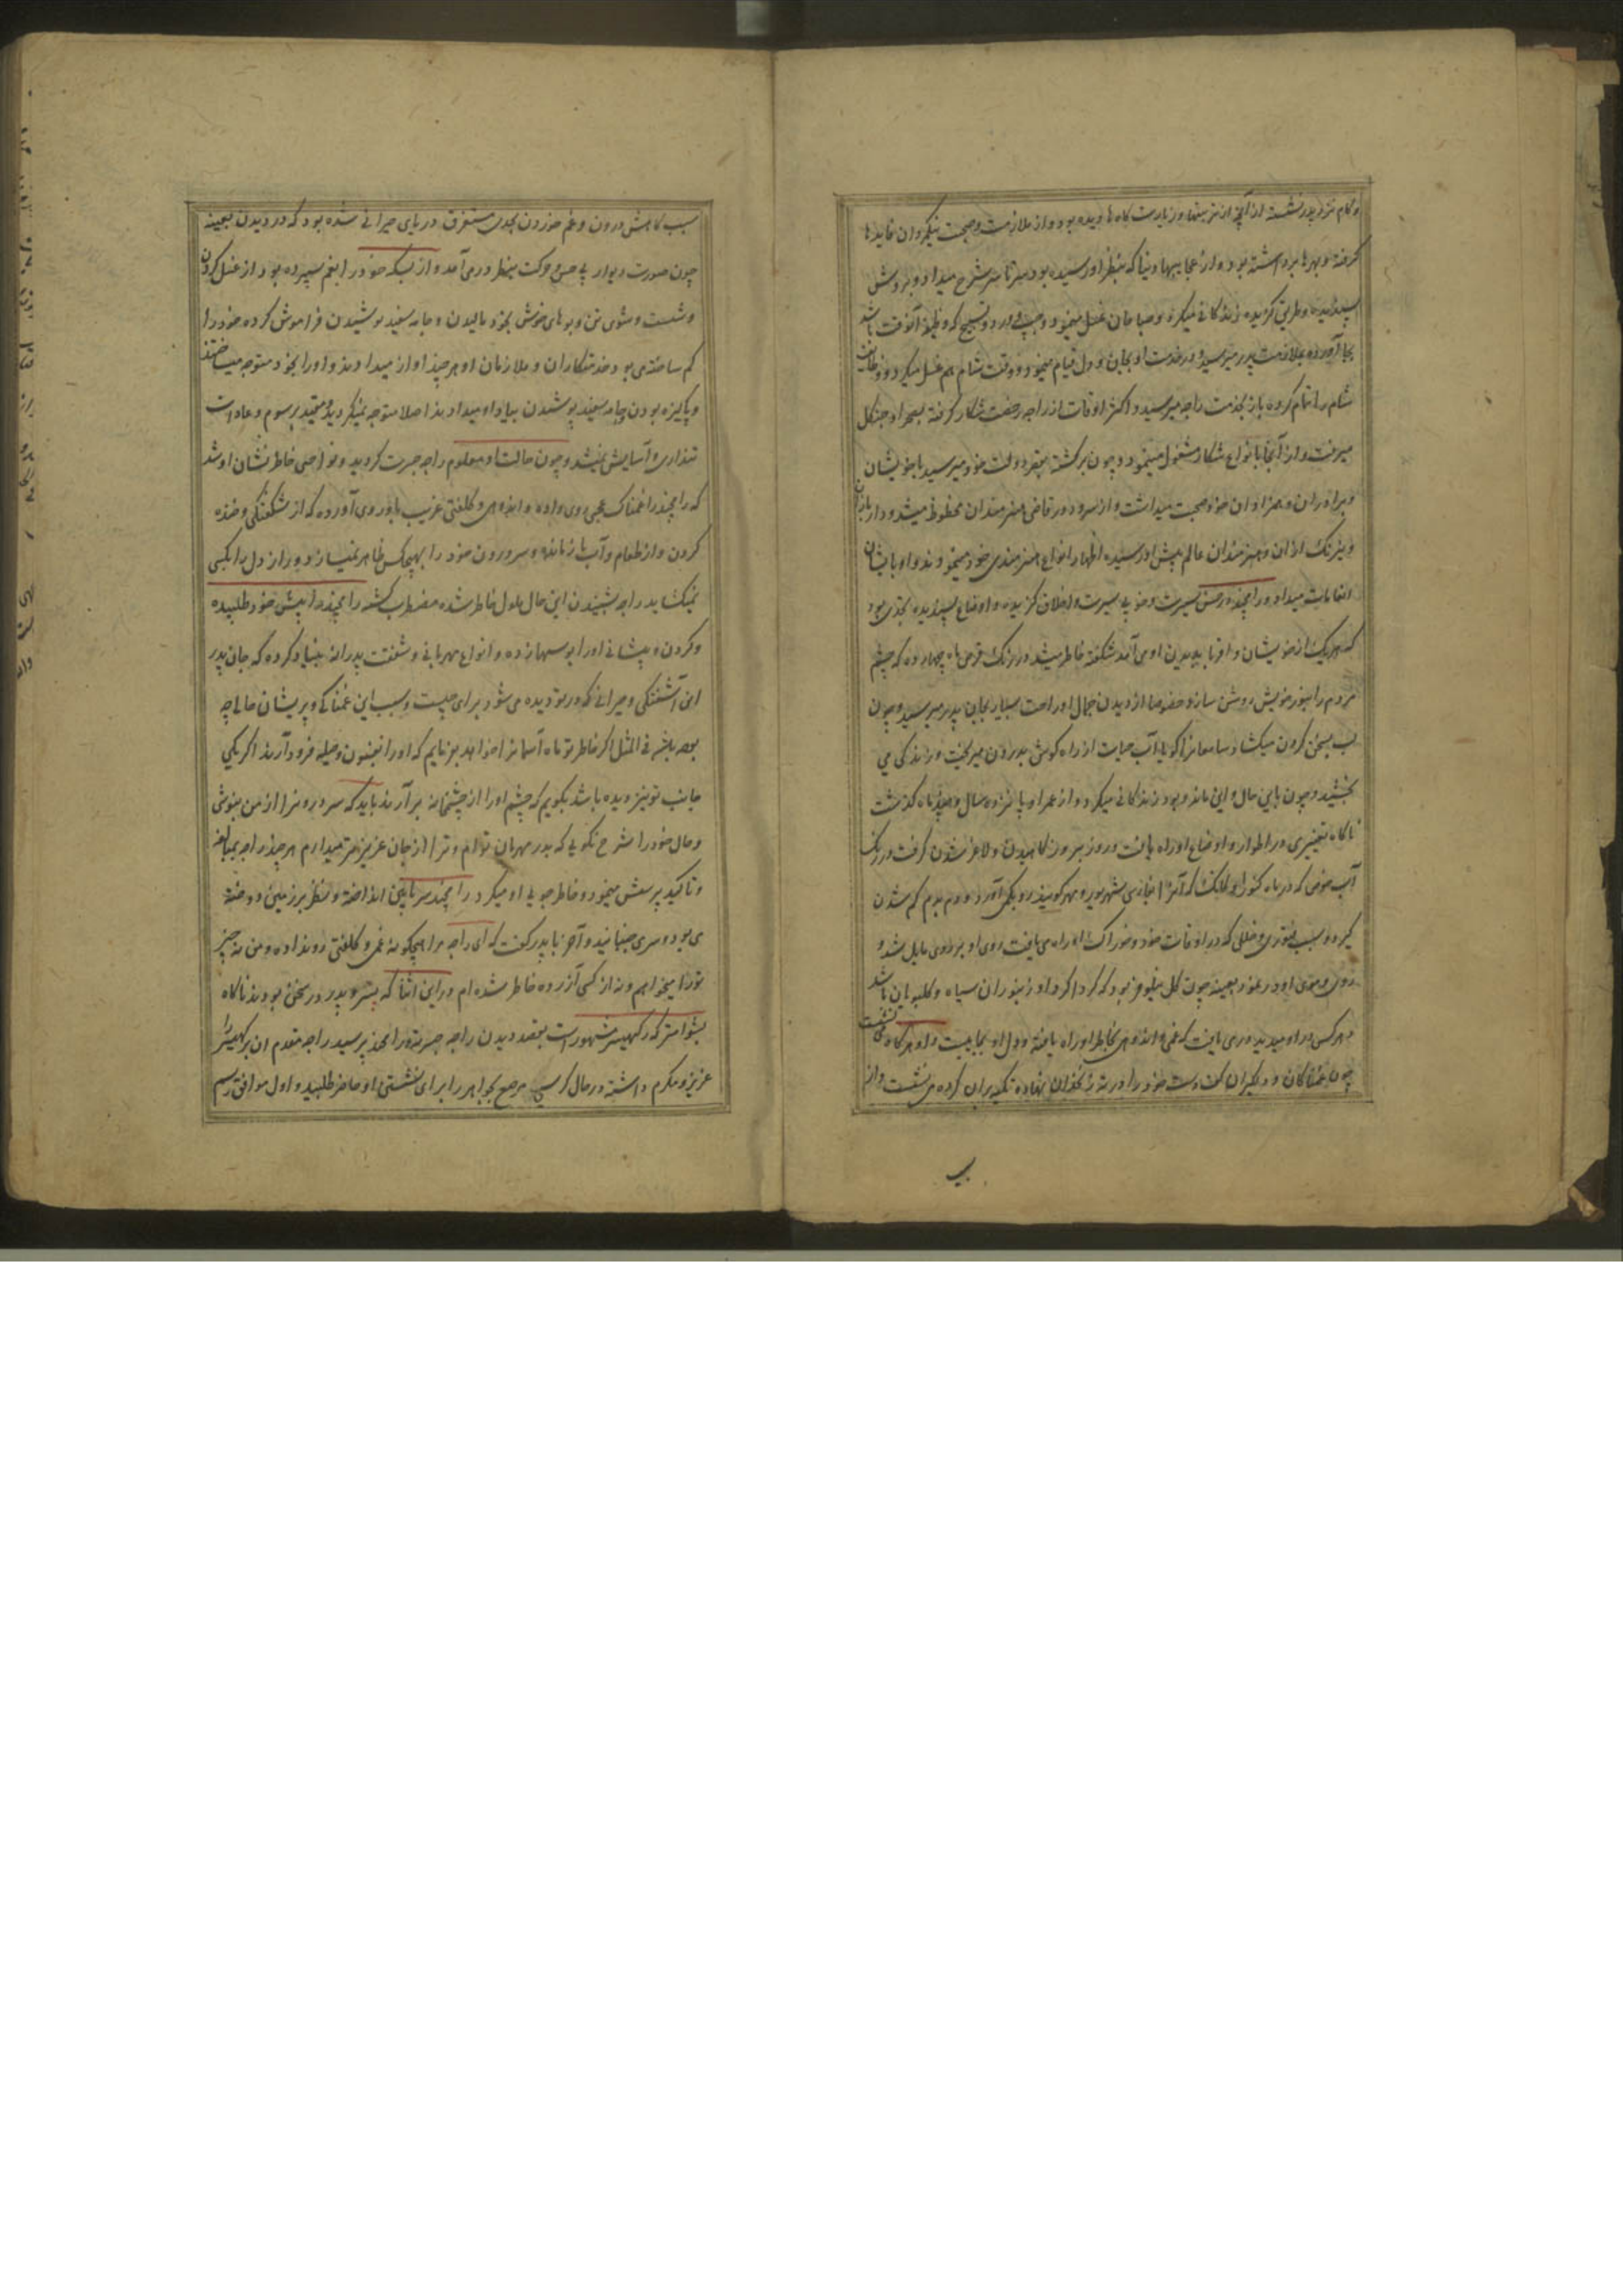 و کام نزد پدر نشست از آنچه از تیرتهها و زیارت کاه ها دیده بود و از ملازمت و صحبت نیکمردان فایدها
کرفته و بهرها برداشته بود و از عجایبهای دنیا که بنظر او رسیده بود سر تا سر شرح میداد و بروش
پسندیده و طریق کزیده زندکانی میکرد و صباحان غسل مینمود و جپ و ورد و تسبیح که وظیفه آنوقت باشد
بجا آورده بملازمت پدر میرسید و در خدمت او بجان و دل قیام مینمود و وقت شام هم غسل میکرد و وظایف
شام را تمام کرده باز بخدمت راجه میرسید و اکثر اوقات از راجه رخصت شکار کرفته بصحرا و جنکل
میرفت و در آنجا بانواع شکار مشغول مینمود و چون برکشته بمقر دولت خود میرسید با خویشان
و برادران و همزادان خود صحبت میداشت و از سرود و رقاصی هنرمندان محظوظ میشد و
و نیرنک سازان و هنرمندان عالم پیش او رسیده اظهار انواع هنرمندی خود مینمودند و او بایشان
انعامات میداد و رامچند در حسن سیرت و خوبی سیرت و اخلاق کزیده و اوضاع پسندیده بحدی بود
که هر یک از خویشان و اقربا بدیدن او می آمد شکفته خاطر میشد و در رنک قرص ماه چهارده که چشم
مردم را بنور خویش روشن سازد خصوصا از دیدن جمال او راحت بسیار بجان پدر میرسید و چون
لب بسخن کردن میکشاد سامعانرا کویا آب حیات از راه کوش بدرون میریخت و زندکی می
بخشید و چون باین حال و این ماند و بود زندکانی میکرد و از عمر او پانزده سال و چند ماه کذشت
ناکاه تغییری در اطوار و اوضاع او راه یافت و روز بروز کاهیدن و لاغر شدن کرفت در رنک
آب حوض که در ماه کنوار و کاتک که آنرا بفارسی شهریور و مهر کویند رو بکمی آرد و دم بدم کم شدن
کیرد و بسبب فتوری و خللی که در اوقات خود و خوراک او راه می یافت روی او بزردی مایل شد و
روی و موی او در نمود بعینه چون کل نیلوفر بود که کرداکرد او زنبوران سیاه و کلبویان باشد
هر کس در او میدید در می یافت که غمی و اندوهی بخاطر او راه یافته و دل او بجانیست و او هر کاه می نشست
چون غمناکان و دلکیران کف دست خود را در ته زنخدان نهاده تکیه بران کرده می نشست و از
سبب کاهش درون و غم خوردن بحدی مستغرق دریای حیرانی شده بود که در دیدن بعینه
چون صورت دیوار بی حس و حرکت بنظر در می آمد و از بسکه خود را بغم سپرده بود از غسل کردن
و شست و شوی تن و بوهای خوش بخود مالیدن و جامه سفید پوشیدن فراموش کرده خود را
کم ساخته می بود خدمتکاران و ملازمان او هر چند آواز میدادند و او را بخود متوجه میساختند
و پاکیزه بودن و جامه سفید پوشیدن بیاد او میدادند اصلا متوجه نمیکردید و مقید برسوم و عادات
تنداری و آسایش نمیشد و چون حالت او معلوم راجه جسرت کردید و خواصی خاطر نشان او شد
که رامچند را غمناکی عجبی روی داده و اندوهی و کلفتی غریب باو روی آورده که از شکفتکی و خنده
کردن و از طعام و آب باز مانده و سر درون خود را بهیچکس ظاهر نمیسازد و راز دل را بکسی
نمیکشاید راجه بشنیدن این حال ملول خاطر شده مضطرب کشته رامچند را پیش خود طلبیده
و کردن و پیشانی او را بوسها زده و انواع مهربانی و شفقت پدرانه بنیاد کرده که جان پدر
این آشفتکی و حیرانی که در تو دیده می شود برای چیست و سبب این غمناکی و پریشان حالی چه
بوده باشد فی المثل اگر خاطر تو ماه آسمانرا خواهد بفرمایم که او را بفسون و حیله فرود آرند اکر یکی
جانب تو تیز دیده باشد بکویم که چشم او را از چشمخانه بر آرند باید که سر درونرا از من نپوشی
و حال خود را شرح نکویی که پدر مهربان توام و ترا از جان عزیزتر میدارم هر چند راجه بمبالغه
و تاکید پرسش مینمود و خاطر جویی او میکرد رامچند سر پایین انداخته و نظر بر زمین دوخته
می بود و سری جنبانید و آخر با پدر گفت که ای راجه مرا هیچکونه غمی و کلفتی رو نداده و من نه چیز
تو را میخواهم و نه از کسی آزرده خاطر شده ام در این اثنا که پسر و پدر در سخن بودند ناکاه
بشوامتر که رکهیسر مشهور است بقصد دیدن راجه جسرت و رامچند پرسید راجه مقدم ان رکهیسر را
عزیز و مکرم داشته در حال کرسی مرصع بجواهر را برای نشستن او حاضر طلبید و اول موافق رسم